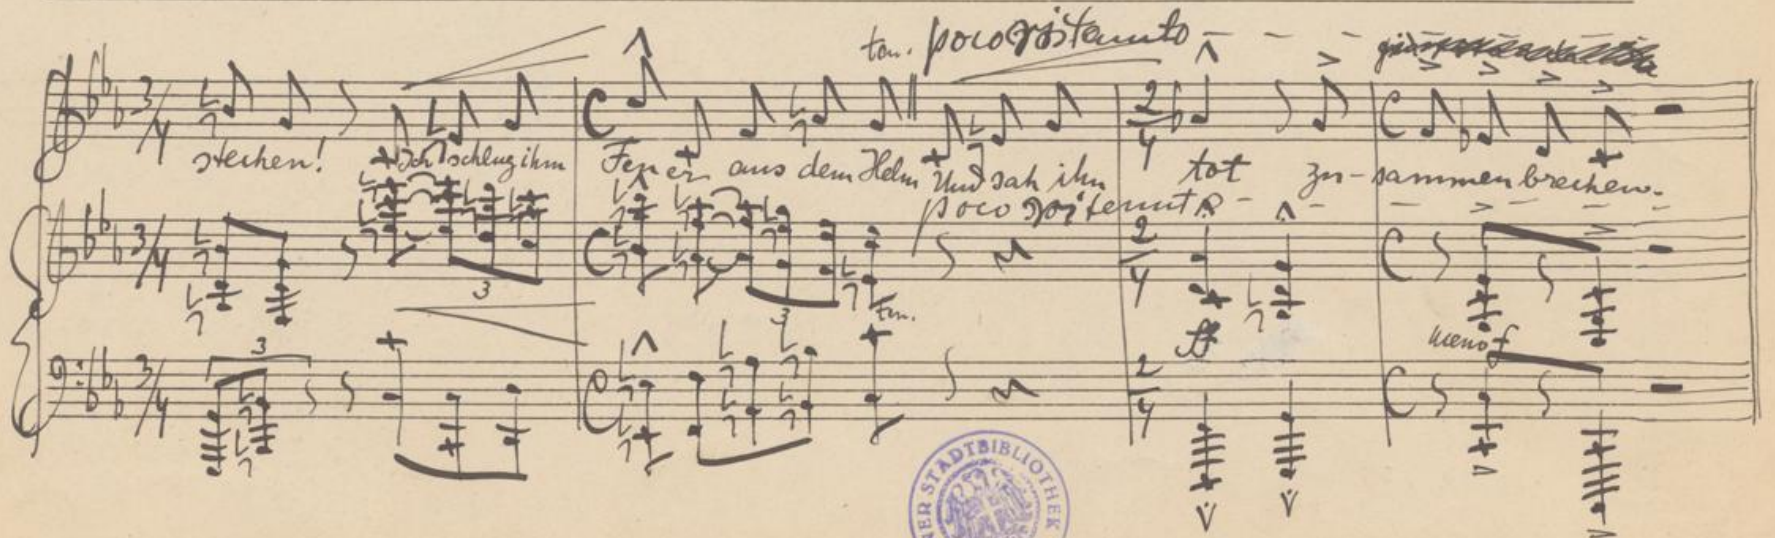 ten. poco ritenuto
3/4 C 2/4 C
stechen! Ich schlug ihm Feuer aus dem Helm Und sah ihn tot zu-sammenbrechen.
poco ritenuto
3/4 C 2/4 C
3 3 ten. ff meno f
3
3/4 C 2/4 C
STADTBIBLIOTHEK